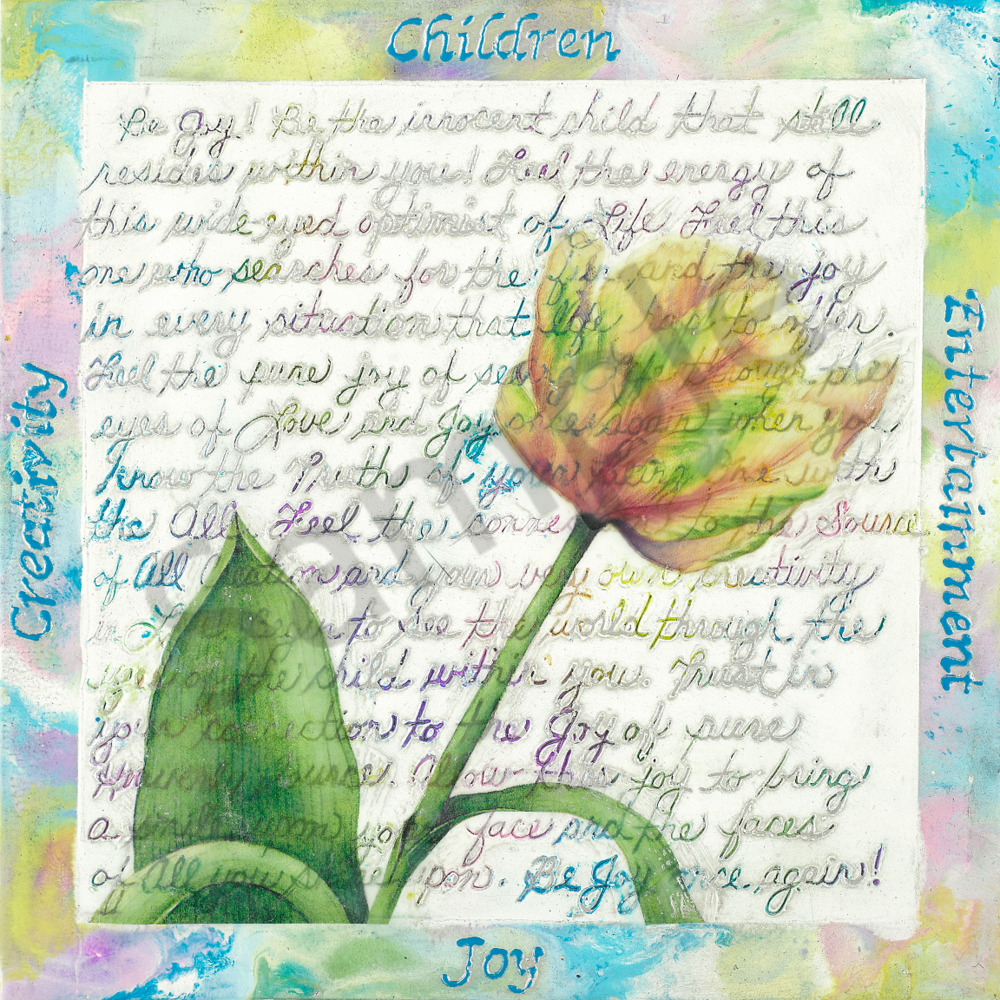 Children
Be Joy! Be the innocent child that still
resides within you! Feel the energy of
this wide-eyed optimist of Life Feel this
one who searches for the fun and the joy
in every situation that life has to offer.
Feel the pure joy of seeing Life through the
eyes of Love and Joy once again when you
Know the Truth of your being One with
the All. Feel the connection to the Source
of All Creation and your very own creativity
in to See the world through the
eyes of the child within you. Trust in
your connection to the Joy of pure
Heavenly source. Allow this joy to bring
a smile upon your face and the faces
of All you shine upon. Be Joy once again!
Creativity
Entertainment
Joy